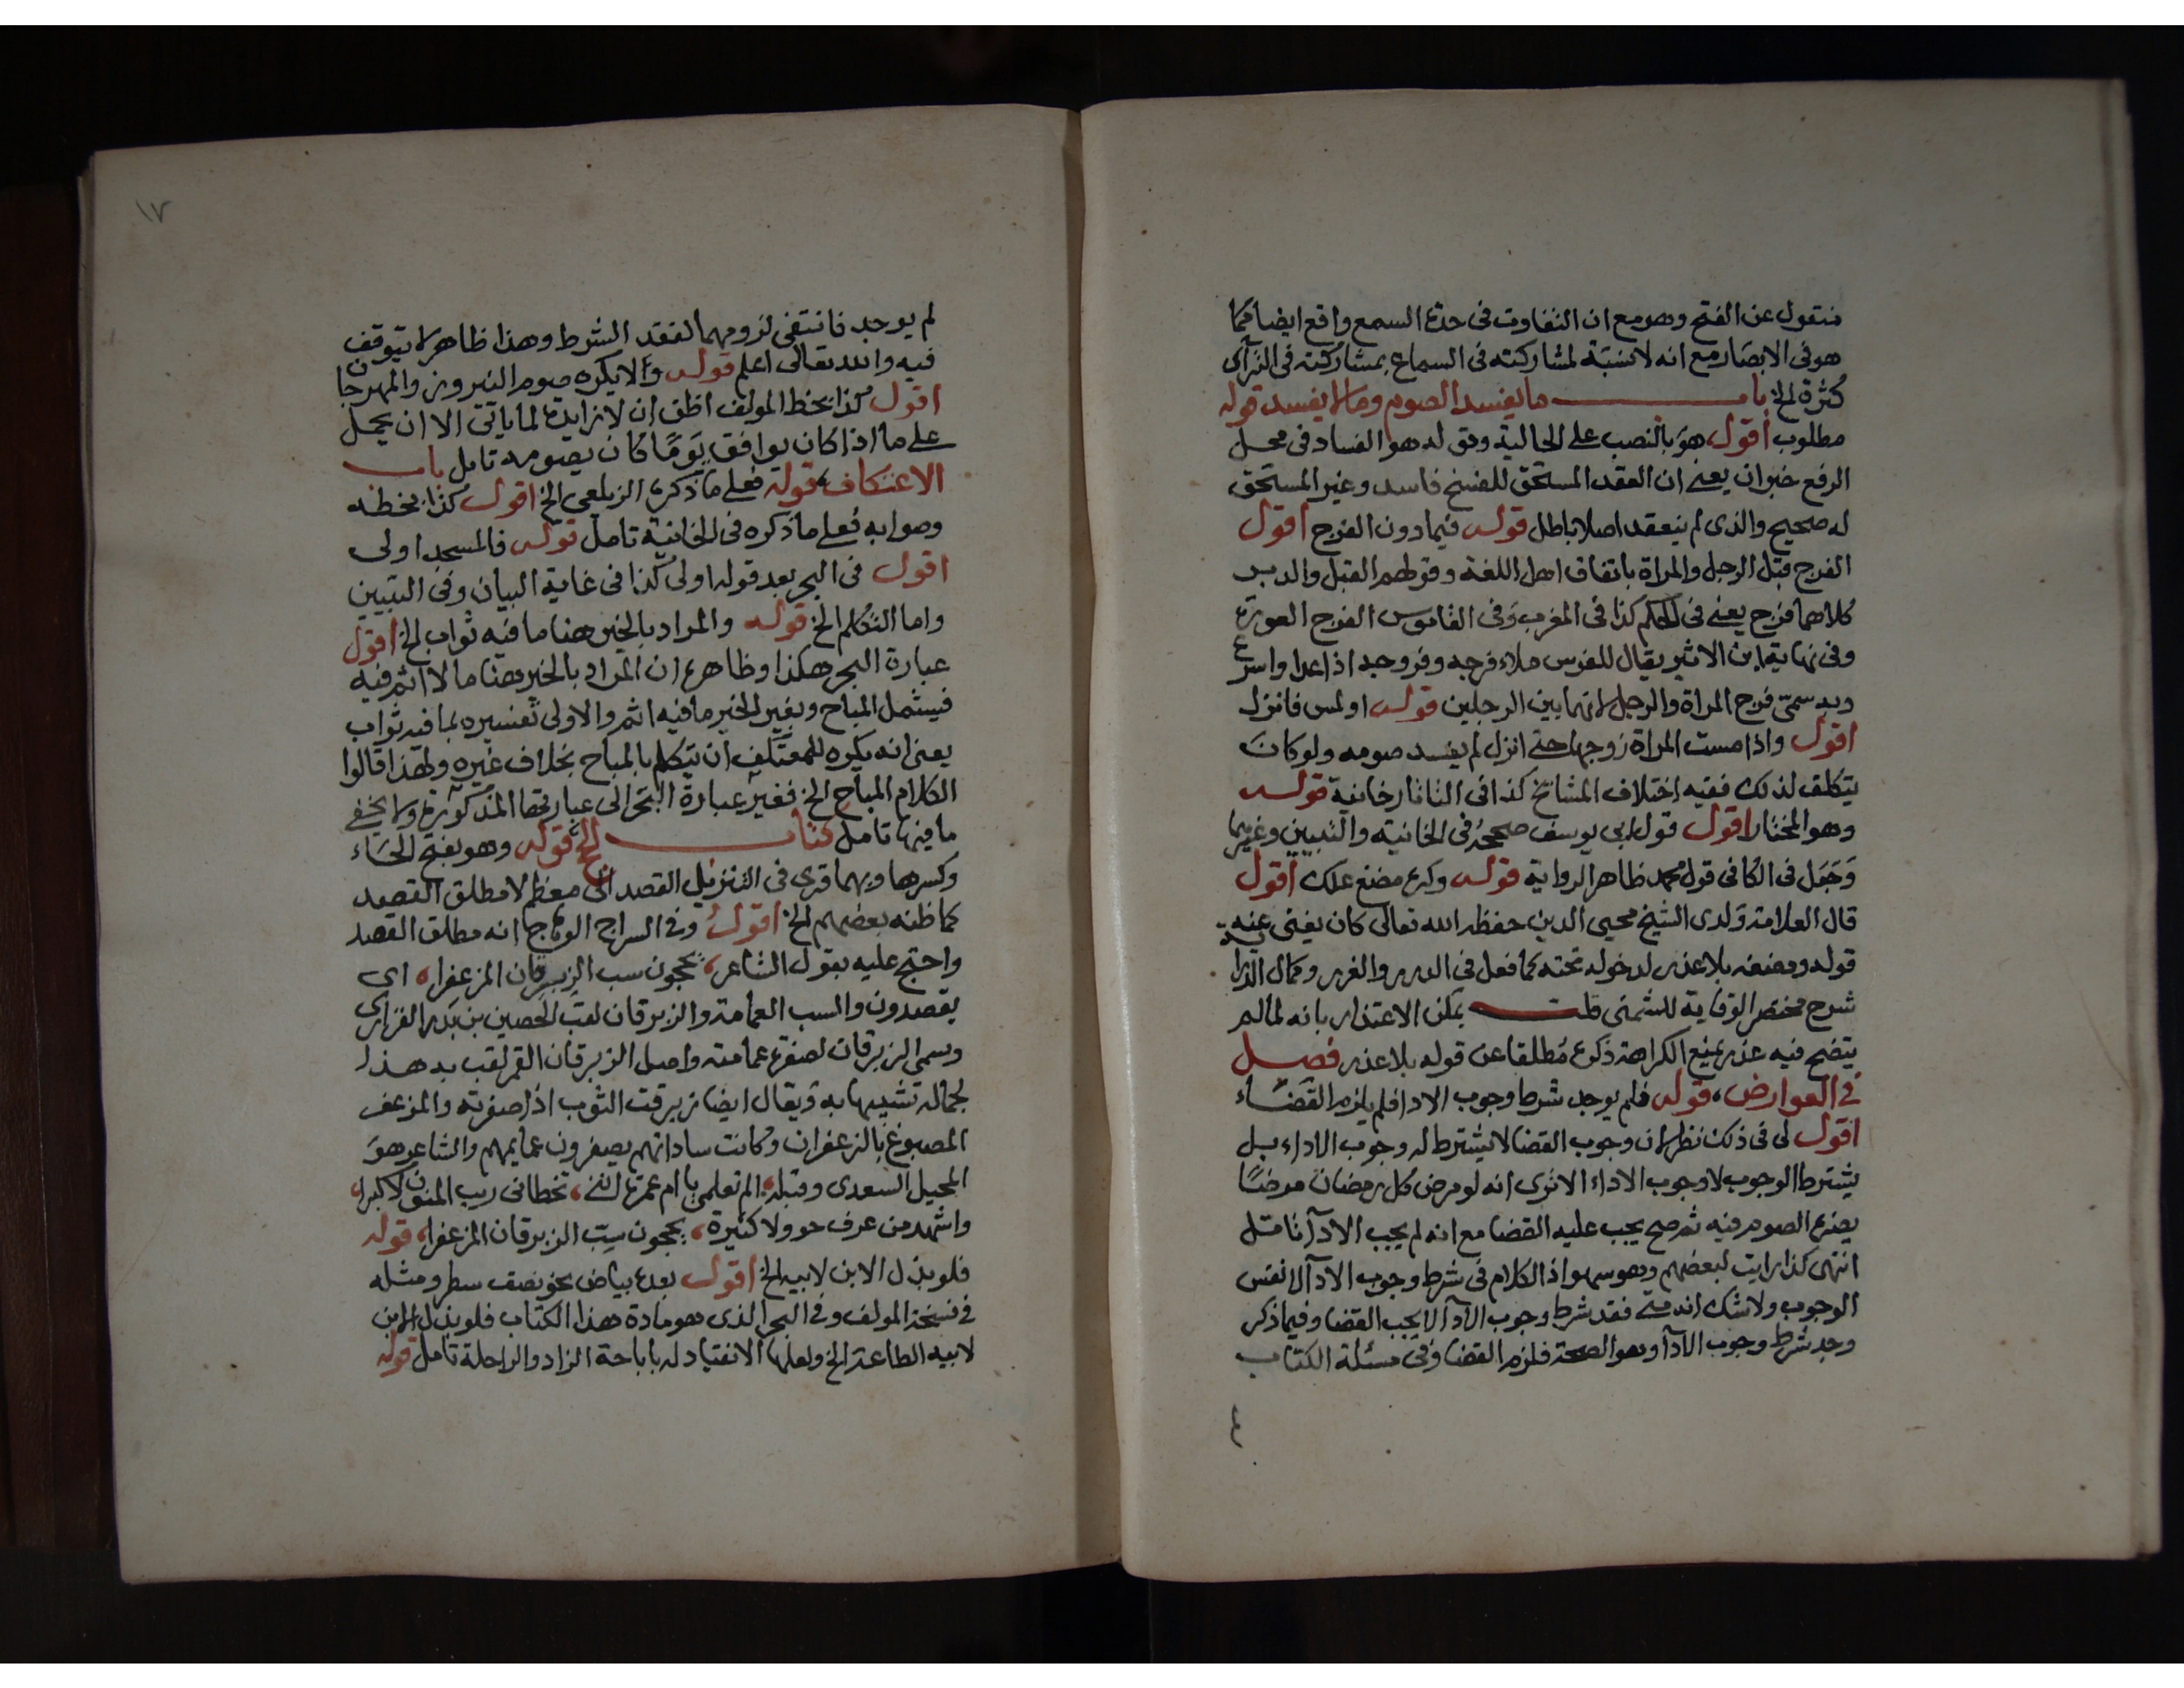 منقول عن الفتح وهو مع ان التفاوت فى حدة السمع واقع ايضا كما
هو فى الابصار مع انه لا نسبة لمشاركته فى السماع بمشاركته فى الترآى
كثرة الخ باب ما يفسد الصوم وما لا يفسد قوله
مطلوب اقول هو بالنصب على الحالية وقوله هو الفساد فى محل
الرفع خبر ان يعنى ان العقد المستحق للفسخ فاسد وغير المستحق
له صحيح والذى لم ينعقد اصلا باطل قوله فيما دون الفرج اقول
الفرج قبل الرجل والمراة باتفاق اهل اللغة وقولهم القبل والدبر
كلاهما فرج يعنى فى الحكم كذا فى المغرب وفى القاموس الفرج العورة
وفى نهاية ابن الاثير يقال للفرس ملاء فرجه وفروجه اذا عدا واسرع
وبه سمّى فرج المراة والرجل لانهما بين الرجلين قوله او لمس فانزل
اقول واذا مست المراة زوجها حتى انزل لم يفسد صومه ولو كان
يتكلف لذلك ففيه اختلاف المشائخ كذا فى التاتارخانية قوله
وهو المختار اقول قول ابى يوسف صححه فى الخانية والتبيين وغيرهما
وجعل فى الكافى قول محمد ظاهر الرواية قوله وكره مضغ علك اقول
قال العلامة ولدى الشيخ محيى الدين حفظه الله تعالى كان يغنى عنه
قوله ومضغه بلا عذر لدخوله تحته كما فعل فى الدرر والغرر وكمال الدراية
شرح مختصر الوقاية للشمنى قلت يمكن الاعتذار بانه لما لم
يتضح فيه عذر يمنع الكراهة ذكره مطلقا عن قوله بلا عذر فصل
فى العوارض، قوله فلم يوجد شرط وجوب الادا فلم يلزم القضاء
اقول لى فى ذلك نظر لان وجوب القضا لا يشترط له وجوب الاداء بل
يشترط الوجوب لا وجوب الاداء الا ترى انه لو مرض كل رمضان مرضًا
يضره الصوم فيه ثم صح يجب عليه القضا مع انه لم يجب الادآ تامل
انتهى كذا رايت لبعضهم وهو سهو اذ الكلام فى شرط وجوب الادآ لا نفس
الوجوب ولا شك انه متى فقد شرط وجوب الادآ لا يجب القضا وفيما ذكر
وجد شرط وجوب الادآ وهو الصحة فلزم القضا وفى مسئلة الكتاب
١٧
لم يوجد فانتفى لزومهما لفقد الشرط وهذا ظاهر لا يتوقف
فيه والله تعالى اعلم قوله والا يكره صوم النيروز والمهرجان
اقول كذا بخط المولف اظن ان لا زايدة لما ياتى الا ان يحمل
على ما اذا كان يوافق يومًا كان يصومه تامل باب
الاعتكاف، قوله فعلى ما ذكره الزيلعى الخ اقول كذا بخطه
وصوابه فعلى ما ذكره فى الخانية تامل قوله فالمسجد اولى
اقول فى البحر بعد قوله اولى كذا فى غاية البيان وفى التبيين
واما التكلم الخ قوله والمراد بالخير هنا ما فيه ثواب الخ اقول
عبارة البحر هكذا وظاهره ان المراد بالخير هنا ما لا اثم فيه
فيشمل المباح وبغير الخير ما فيه اثم والاولى تفسيره بما فيه ثواب
يعنى انه يكره للمعتكف ان يتكلم بالمباح بخلاف غيره ولهذا قالوا
الكلام المباح الخ فغير عبارة البحر الى عبارتها المذكورة ولا يخفى
ما فيها تامل كتاب الحج قوله وهو بفتح الحاء
وكسرها وبهما قرى فى التنزيل القصد الى معظم لا مطلق القصد
كما ظنه بعضهم الخ اقول وفى السراج الوهاج انه مطلق القصد
واحتج عليه بقول الشاعر، يحجون سب الزبرقان المزعفرا، اى
يقصدون والسب العمامة والزبرقان لقب الحصين بن بدر الفزارى
وسمى الزبرقان لصفرة عمامته واصل الزبرقان القمر لقب به هذا
لجماله تشبيها به ويقال ايضا زبرقت الثوب اذا صفرته والمزعفر
المصبوغ بالزعفران وكانت ساداتهم يصفرون عمايمهم والشاعر هو
المخبل السعدى وقبله، الم تعلمى يا ام عمرة اننى، تخطانى ريب المنون لاكبرا،
واشهد من عوف حوولا كثيرة، يحجون سب الزبرقان المزعفرا، قوله
فلو بذل الابن لابيه الخ اقول بعده بياض نحو نصف سطر ومثله
فى نسخة المولف وفى البحر الذى هو مادة هذا الكتاب فلو بذل الابن
لابيه الطاعة الخ ولعلها الانقياد له باباحة الزاد والراحلة تامل قوله